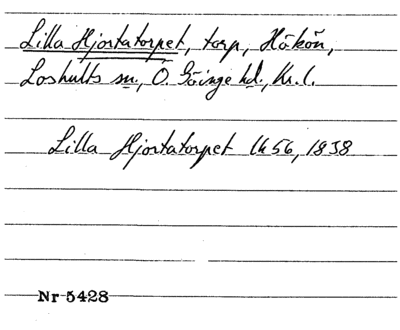 Lilla Hjortatorpet, torp, Hökön,
Loshults sn., Ö. Göinge hd., Kr. l.
Lilla Hjortatorpet lk 56, 1838
Nr 5428